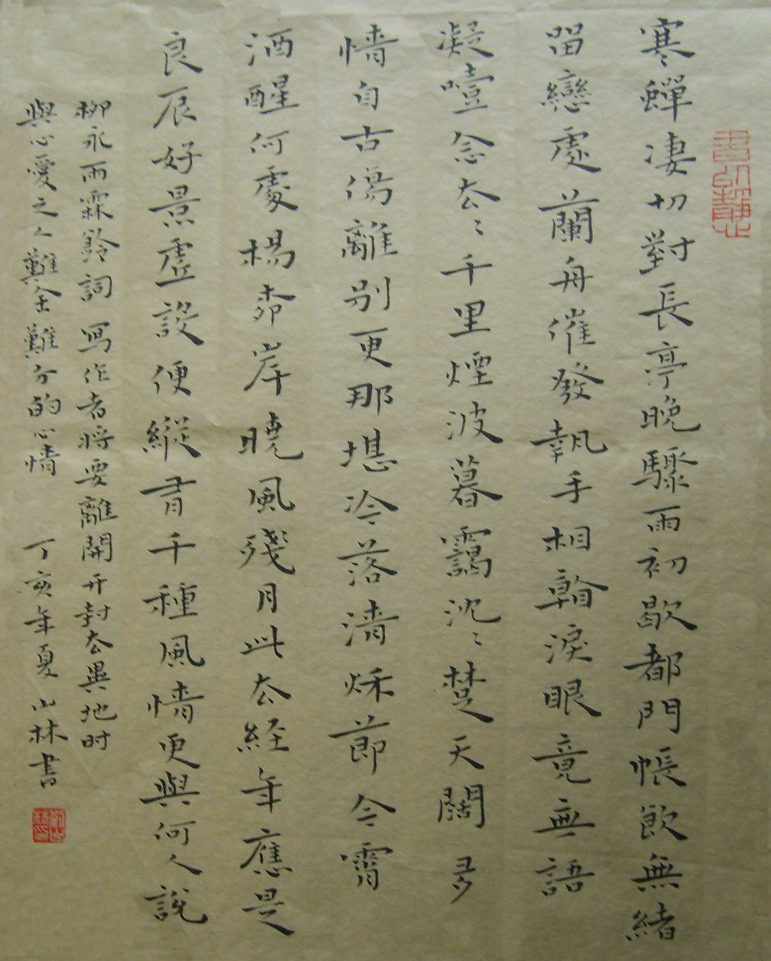 寒蟬凄切對長亭晚驟雨初歇都門帳飲無緒
留戀處蘭舟催發執手相看淚眼竟無語
凝噎念去〻千里煙波暮靄沈〻楚天闊多
情自古傷離別更那堪冷落清秋節今宵
酒醒何處楊柳岸曉風殘月此去經年應是
良辰好景虛設便縱有千種風情更與何人說
柳永雨霖鈴詞 寫作者將要離開開封去異地時
與心愛之人難舍難分的心情 丁亥年夏 山林書